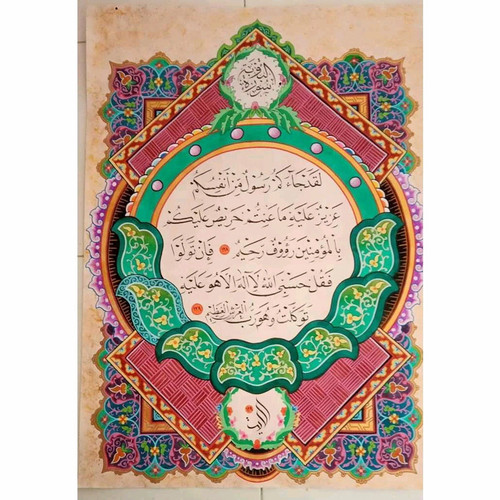 سورة التوبة
لقد جاءكم رسول من أنفسكم
عزيز عليه ما عنتم حريص عليكم
بالمؤمنين رؤوف رحيم ١٢٨ فإن تولوا
فقل حسبي الله لا إله إلا هو عليه
توكلت وهو رب العرش العظيم ١٢٩